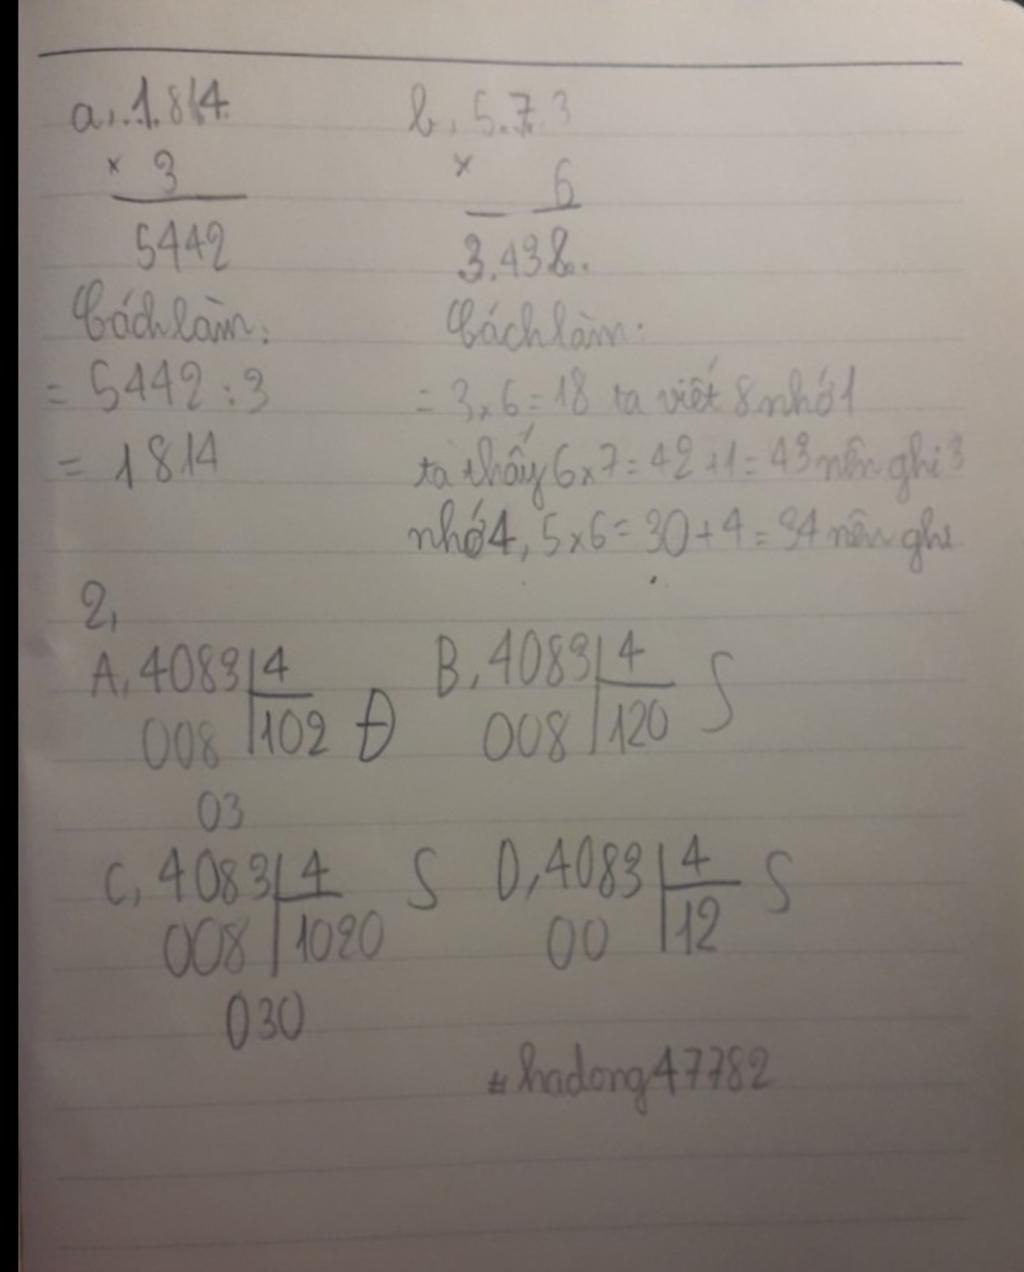 a, .1.814.
× 3
5442
Cách làm:
= 5442 : 3
= 1814
b, 5.7.3
× 6
3.438.
Cách làm:
= 3 × 6 = 18 ta viết 8 nhớ 1
ta thấy 6 × 7 = 42 + 1 = 43 nên ghi 3
nhớ 4, 5 × 6 = 30 + 4 = 34 nên ghi
2,
A, 4083 4
008 102 Đ
03
B, 4083 4 S
008 120
C, 4083 4 S
008 1020
030
D, 4083 4 S
00 12
#hadong47782